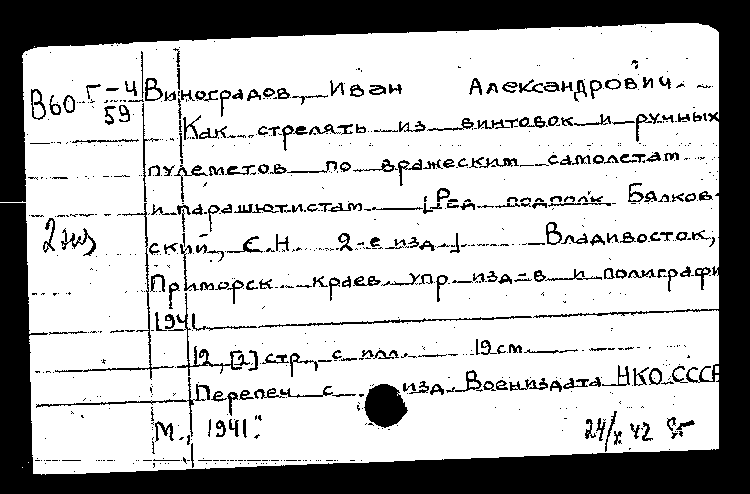 В60 Г-4
59
Виноградов, Иван Александрович.
Как стрелять из винтовок и ручных
пулеметов по вражеским самолетам
и парашютистам. [Ред. подполк. Бялков-
2 экз
ский, С.Н. 2-е изд.] Владивосток,
Приморск. краев. упр. изд-в и полиграфи
1941.
12, [2] стр., с илл. 19 см.
Перепеч. с изд. Воениздата НКО СССР
М., 1941."
24/X 42